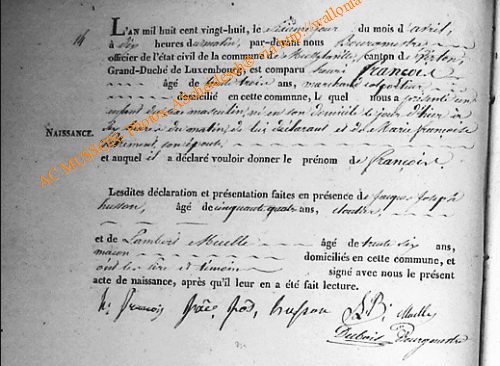 14
L'AN mil huit cent vingt-huit, le jour du mois d'avril,
à dix heures du matin, par-devant nous Bourgmestre
officier de l'état civil de la commune de canton de Virton,
Grand-Duché de Luxembourg, est comparu henri françois
âgé de trente trois ans, marchand colporteur
domicilié en cette commune, Lequel nous a présenté un
enfant du sexe masculin, né en son domicile le jour d'hier à
heures du matin, de lui déclarant et de Marie françoise
son épouse
NAISSANCE.
et auquel il a déclaré vouloir donner le prénom de françois.
Lesdites déclaration et présentation faites en présence de Jacques Joseph
husson, âgé de cinquante quatre ans, cloutier,
et de Lambert Muelle âgé de trente six ans,
maçon domiciliés en cette commune, et
ont les père et témoins signé avec nous le présent
acte de naissance, après qu'il leur en a été fait lecture.
h. françois jacq jos husson L B Muelle
Dubois Bourgmestre
AC MUSSON Photos
http://wallonia